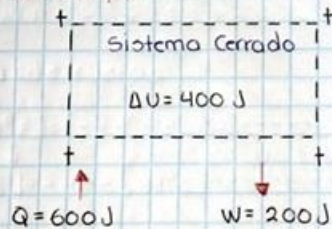 Sistema Cerrado
ΔU = 400 J
Q = 600 J
W = 200 J